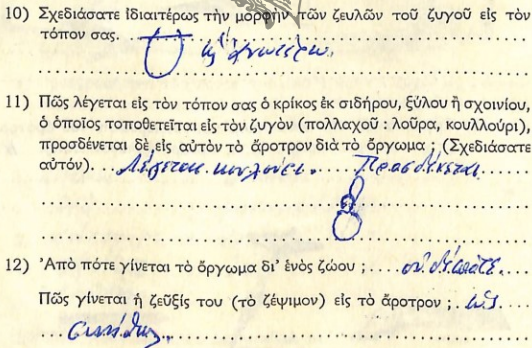 10) Σχεδιάσατε ἰδιαιτέρως τὴν μορφὴν τῶν ζευλῶν τοῦ ζυγοῦ εἰς τὸν
τόπον σας. ὡς ἀνωτέρω.
11) Πῶς λέγεται εἰς τὸν τόπον σας ὁ κρίκος ἐκ σιδήρου, ξύλου ἢ σχοινίου,
ὁ ὁποῖος τοποθετεῖται εἰς τὸν ζυγὸν (πολλαχοῦ : λοῦρα, κουλλούρι),
προσδένεται δὲ εἰς αὐτὸν τὸ ἄροτρον διὰ τὸ ὄργωμα ; (Σχεδιάσατε
αὐτόν). Λέγεται κουλούρι. Προσδένεται
12) Ἀπὸ πότε γίνεται τὸ ὄργωμα δι' ἑνὸς ζώου ;
Πῶς γίνεται ἡ ζεῦξίς του (τὸ ζέψιμον) εἰς τὸ ἄροτρον ; ὡς
συνήθως